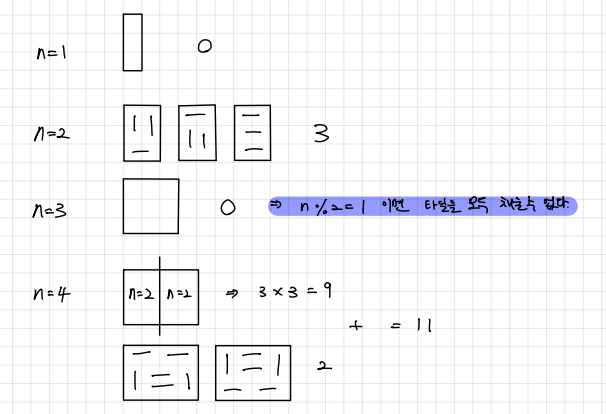 n=1 0
n=2 3
n=3 0 ⇒ n%2=1 이면 타일을 모두 채울수 없다.
n=4 n=2 n=2 ⇒ 3×3=9
+ = 11
2